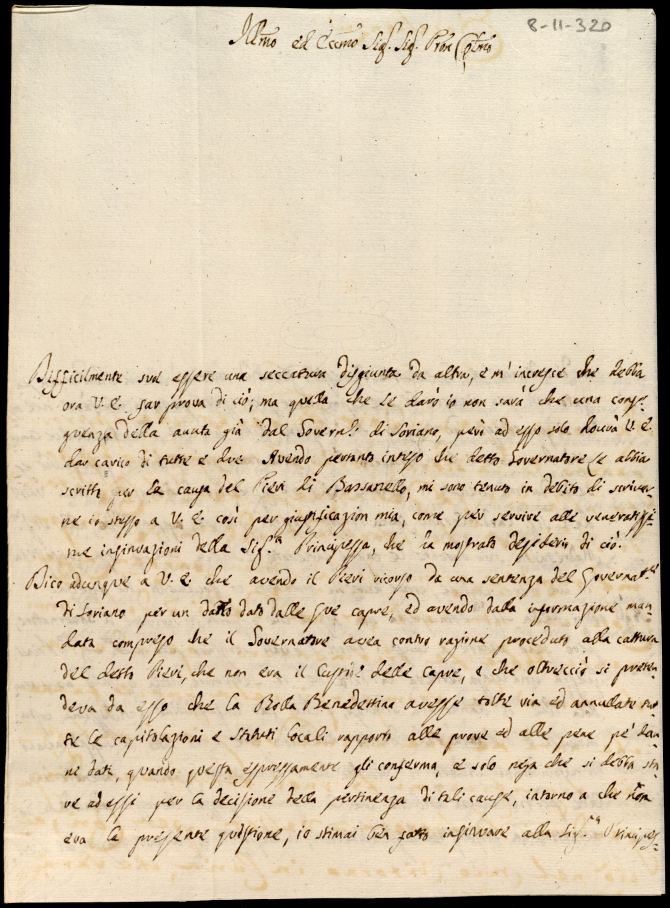 8-11-320
Illmo ed Eccmo Sigr. Sigr. Prñ Colmo
Difficilmente suol essere una seccatura disgiunta da altra, e m' incresce che debba
ora V. E. far prova di ciò; ma quella che Le darò io non sarà che una conse-
guenza della avuta già dal Governre. di Soriano, però ad esso solo dovrà V. E.
dar carico di tutte e due. Avendo pertanto inteso che detto Governatore Le abbia
scritto per la causa del Pievi di Bassanello, mi sono tenuto in debito di scriver-
ne io stesso a V. E. così per giustificazion mia, come per servire alle veneratissi-
me insinuazioni della Sigra. Principessa, che ha mostrato desiderio di ciò.
Dico adunque a V. E. che avendo il Pievi ricorso da una sentenza del Governat.re
di Soriano per un danno dato dalle Sue capre, ed avendo dalla informazione man
data compreso che il Governatore avea contro ragione proceduto alla cattura
del detto Pievi, che non era il Custode delle Capre, e che oltrecciò si preten
deva da esso che la Bolla Benedettina avesse tolte via ed annullate tut
te le capitolazioni e statuti locali rapporto alle prove ed alle pene pe' dan
ni dati, quando questa espressamente gli conferma, e solo nega che si debba sta
re ad essi per la decisione della pertinenza di tali cause, intorno a che non
era la presente questione, io stimai ben fatto insinuare alla Sigra. Principes-